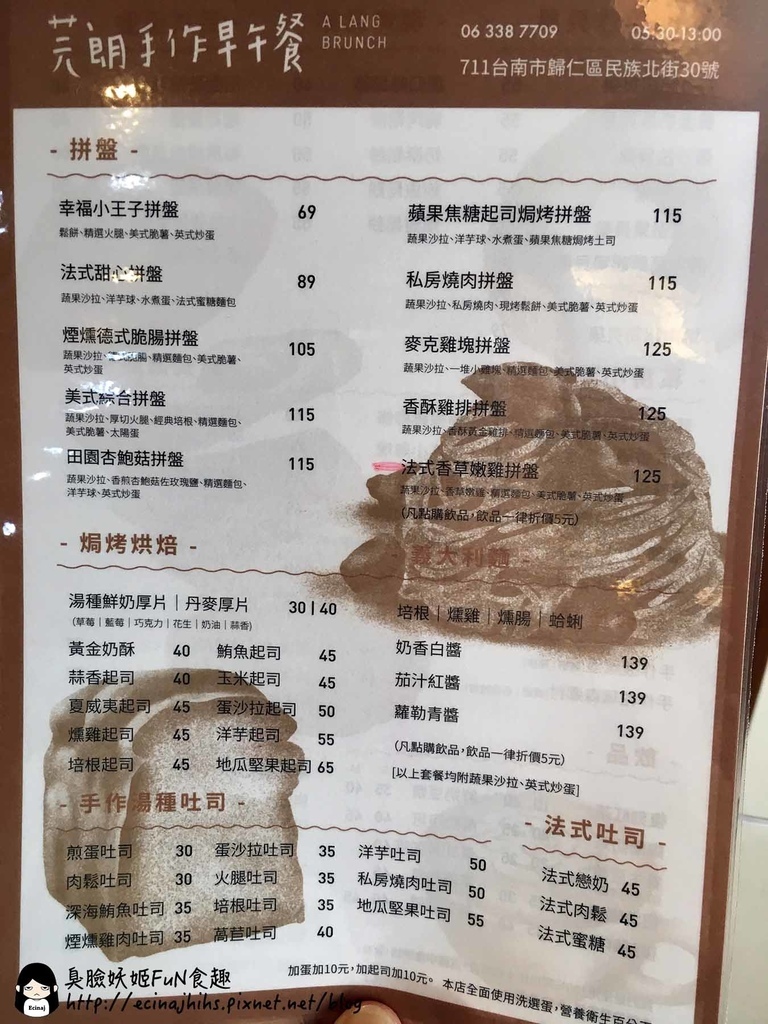 艼朗手作早午餐
A LANG
BRUNCH
06 338 7709 05:30-13:00
711台南市歸仁區民族北街30號
- 拼盤 -
幸福小王子拼盤 69
鬆餅、精選火腿、美式脆薯、英式炒蛋
法式甜心拼盤 89
蔬果沙拉、洋芋球、水煮蛋、法式蜜糖麵包
煙燻德式脆腸拼盤 105
蔬果沙拉、德式脆腸、精選麵包、美式脆薯、
英式炒蛋
美式綜合拼盤 115
蔬果沙拉、厚切火腿、經典培根、精選麵包、
美式脆薯、太陽蛋
田園杏鮑菇拼盤 115
蔬果沙拉、香煎杏鮑菇佐玫瑰鹽、精選麵包、
洋芋球、英式炒蛋
蘋果焦糖起司焗烤拼盤 115
蔬果沙拉、洋芋球、水煮蛋、蘋果焦糖焗烤土司
私房燒肉拼盤 115
蔬果沙拉、私房燒肉、現烤鬆餅、美式脆薯、英式炒蛋
麥克雞塊拼盤 125
蔬果沙拉、一堆小雞塊、精選麵包、美式脆薯、英式炒蛋
香酥雞排拼盤 125
蔬果沙拉、香酥黃金雞排、精選麵包、美式脆薯、英式炒蛋
法式香草嫩雞拼盤 125
蔬果沙拉、香草嫩雞、精選麵包、美式脆薯、英式炒蛋
(凡點購飲品,飲品一律折價5元)
- 焗烤烘焙 -
湯種鮮奶厚片｜丹麥厚片 30 | 40
(草莓｜藍莓｜巧克力｜花生｜奶油｜蒜香)
黃金奶酥 40 鮪魚起司 45
蒜香起司 40 玉米起司 45
夏威夷起司 45 蛋沙拉起司 50
燻雞起司 45 洋芋起司 55
培根起司 45 地瓜堅果起司 65
- 義大利麵 -
培根｜燻雞｜燻腸｜蛤蜊
奶香白醬 139
茄汁紅醬 139
蘿勒青醬 139
(凡點購飲品,飲品一律折價5元)
[以上套餐均附蔬果沙拉、英式炒蛋]
- 手作湯種吐司 -
煎蛋吐司 30 蛋沙拉吐司 35 洋芋吐司 50
肉鬆吐司 30 火腿吐司 35 私房燒肉吐司 50
深海鮪魚吐司 35 培根吐司 35 地瓜堅果吐司 55
煙燻雞肉吐司 35 萵苣吐司 40
- 法式吐司 -
法式戀奶 45
法式肉鬆 45
法式蜜糖 45
加蛋加10元,加起司加10元。 本店全面使用洗選蛋,營養衛生百分百
臭臉妖姬FuN食趣
http://ecinajhihs.pixnet.net/blog
Ecinaj